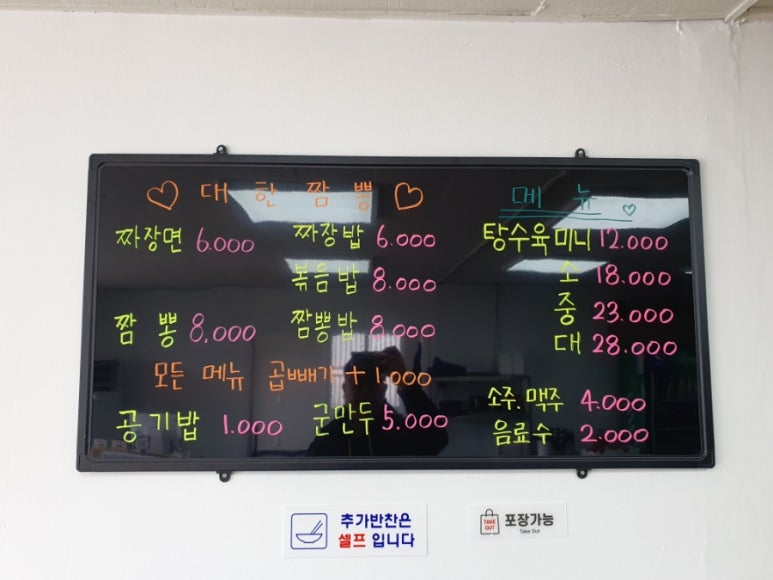 ♡ 대 한 짬 뽕 ♡
짜장면 6.000 짜장밥 6.000
볶음밥 8.000
짬 뽕 8,000 짬뽕밥 8.000
모든 메뉴 곱빼기+1.000
공기밥 1.000 군만두 5.000
메 뉴 ♡
탕수육미니 12.000
소 18.000
중 23.000
대 28.000
소주.맥주 4.000
음료수 2.000
추가반찬은
셀프 입니다
TAKE OUT 포장가능
Take Out